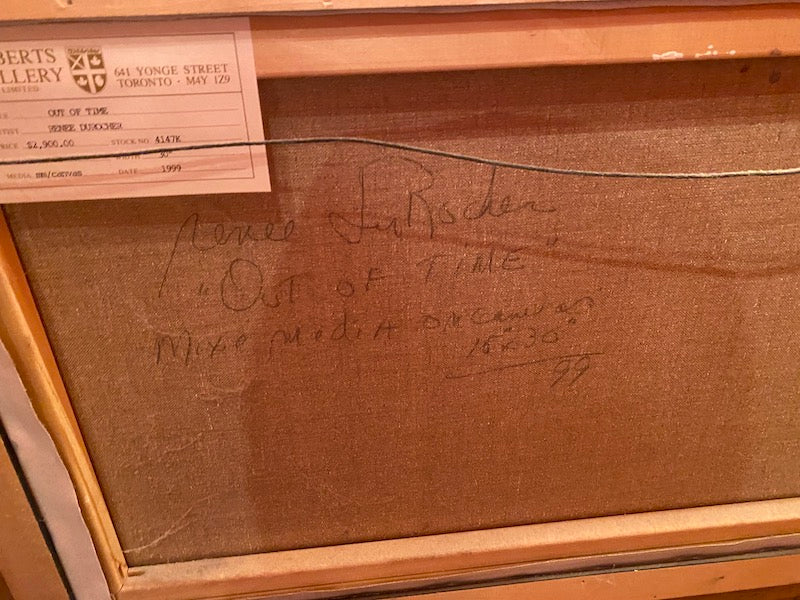 BERTS
LLERY
LIMITED
641 YONGE STREET
TORONTO · M4Y 1Z9
OUT OF TIME
RENEE DUROCHER
RICE $2,900.00 STOCK NO. 4147K
30"
MEDIA MM/CANVAS DATE 1999
Renee DuRocher
"OUT OF TIME"
Mixe MediA on Canvas
15"x30"
99